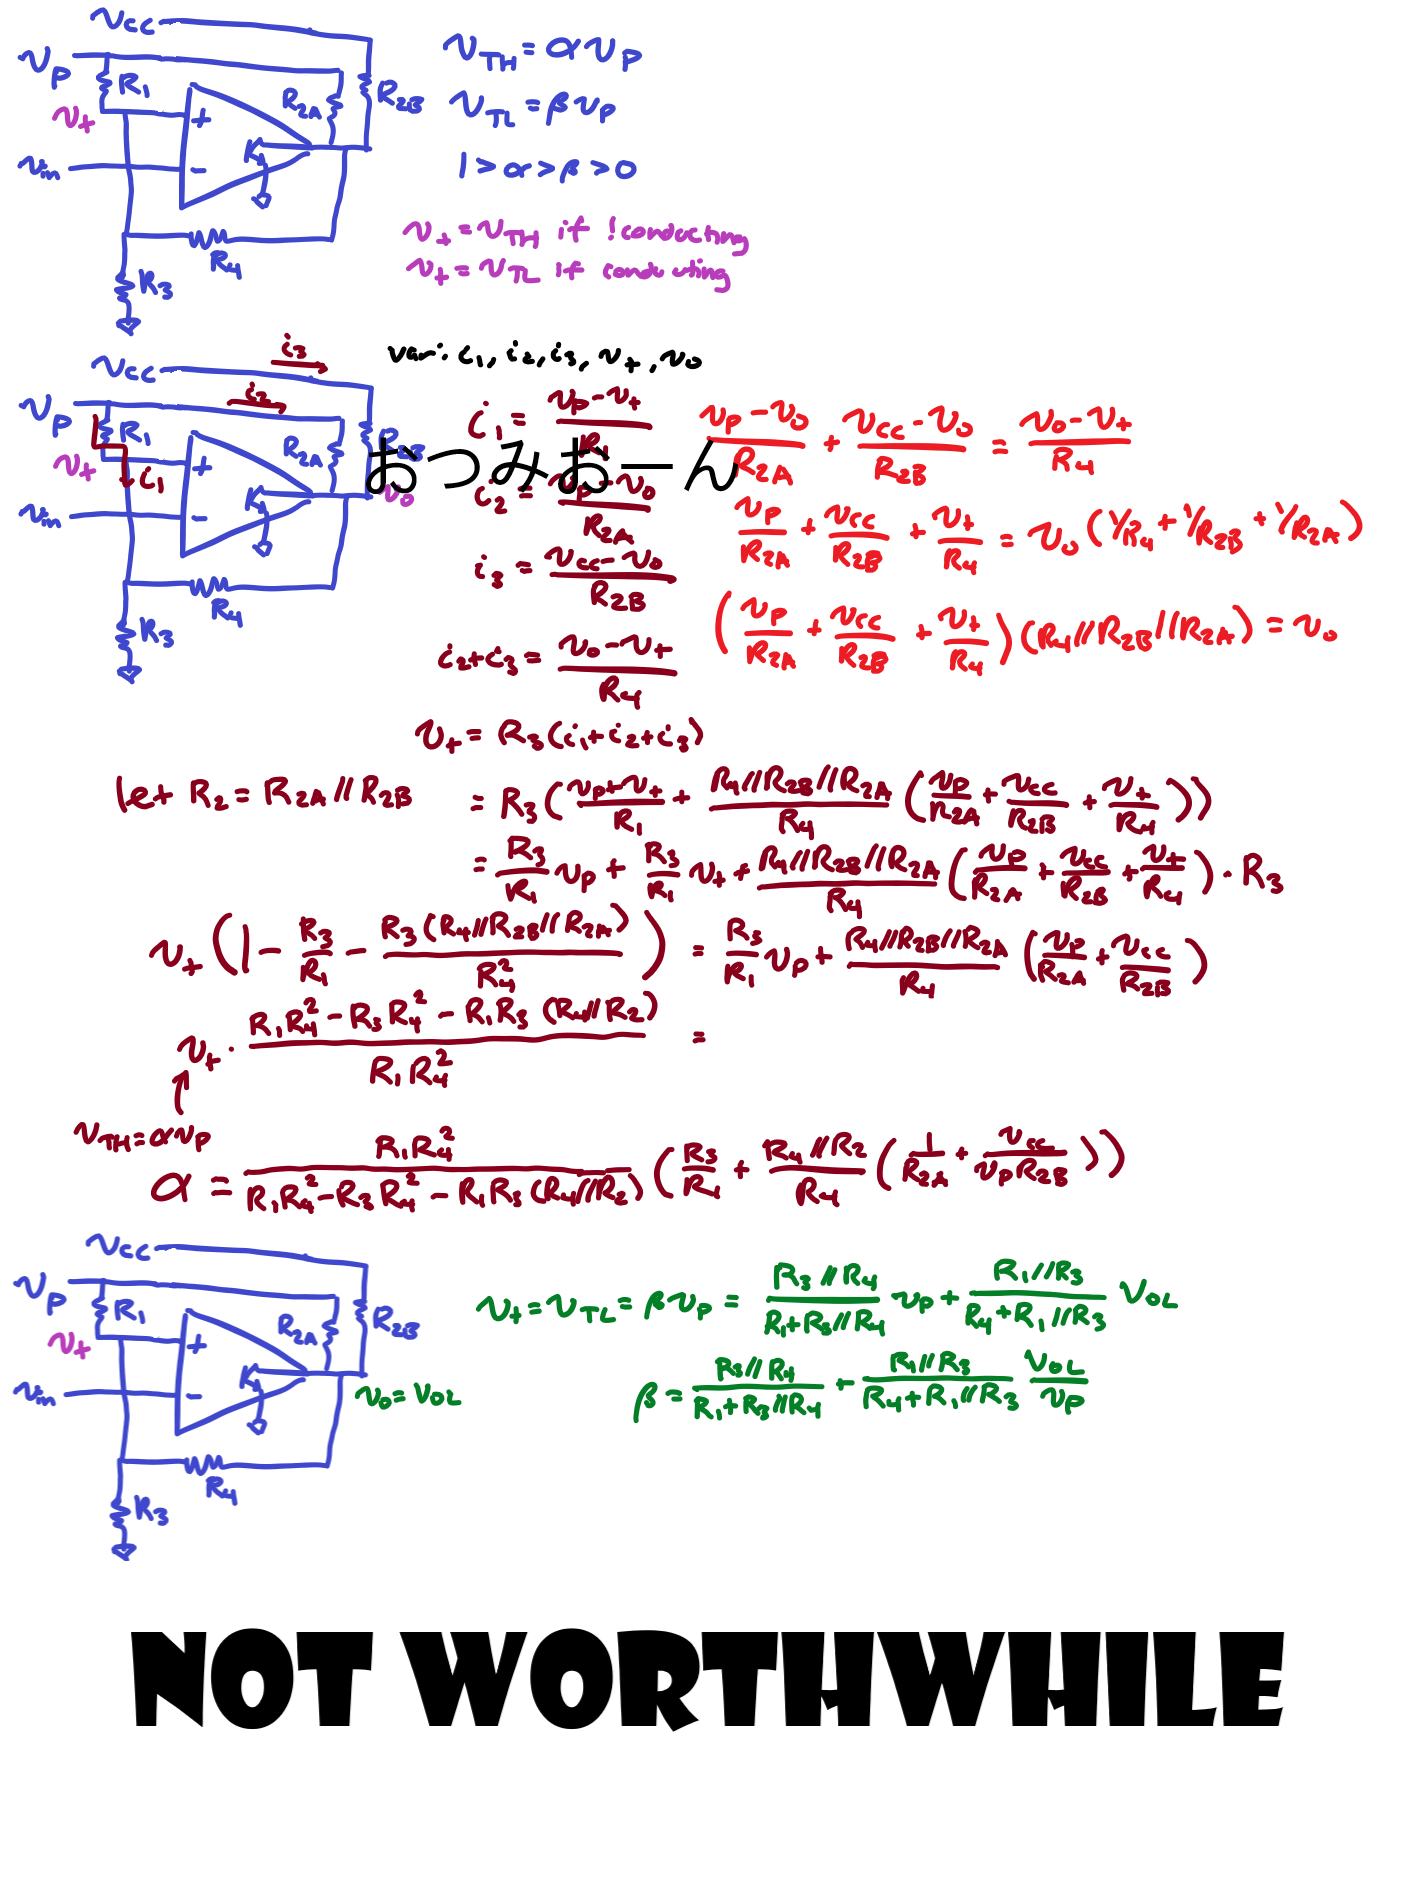 v_CC
v_P
R_1
R_2A
R_2B
v_+
v_in
+
-
R_4
R_3
v_TH = α v_P
v_TL = β v_P
1 > α > β > 0
v_+ = v_TH if !conducting
v_+ = v_TL if conducting
var: i_1, i_2, i_3, v_+, v_o
v_CC
i_3
v_P
i_2
R_1
R_2A
R_2B
v_+
i_1
v_o
v_in
+
-
R_4
R_3
i_1 = (v_P - v_+)/R_1
おつみおーん
i_2 = (v_P - v_o)/R_2A
i_3 = (v_CC - v_o)/R_2B
i_2 + i_3 = (v_o - v_+)/R_4
(v_P - v_o)/R_2A + (v_CC - v_o)/R_2B = (v_o - v_+)/R_4
v_P/R_2A + v_CC/R_2B + v_+/R_4 = v_o (1/R_4 + 1/R_2B + 1/R_2A)
(v_P/R_2A + v_CC/R_2B + v_+/R_4)(R_4//R_2B//R_2A) = v_o
v_+ = R_3 (i_1 + i_2 + i_3)
let R_2 = R_2A // R_2B
= R_3 ((v_P + v_+)/R_1 + (R_4//R_2B//R_2A)/R_4 (v_P/R_2A + v_CC/R_2B + v_+/R_4))
= R_3/R_1 v_P + R_3/R_1 v_+ + (R_4//R_2B//R_2A)/R_4 (v_P/R_2A + v_CC/R_2B + v_+/R_4) · R_3
v_+ (1 - R_3/R_1 - R_3(R_4//R_2B//R_2A)/R_4^2) = R_3/R_1 v_P + (R_4//R_2B//R_2A)/R_4 (v_P/R_2A + v_CC/R_2B)
v_+ · (R_1R_4^2 - R_3R_4^2 - R_1R_3(R_4//R_2))/(R_1R_4^2) =
v_TH = α v_P
α = R_1R_4^2/(R_1R_4^2 - R_3R_4^2 - R_1R_3(R_4//R_2)) (R_3/R_1 + (R_4//R_2)/R_4 (1/R_2A + v_CC/(v_P R_2B)))
v_CC
v_P
R_1
R_2A
R_2B
v_+
v_in
+
-
v_o = V_OL
R_4
R_3
v_+ = v_TL = β v_P = (R_3//R_4)/(R_1 + R_3//R_4) v_P + (R_1//R_3)/(R_4 + R_1//R_3) V_OL
β = (R_3//R_4)/(R_1 + R_3//R_4) + (R_1//R_3)/(R_4 + R_1//R_3) V_OL/v_P
NOT WORTHWHILE